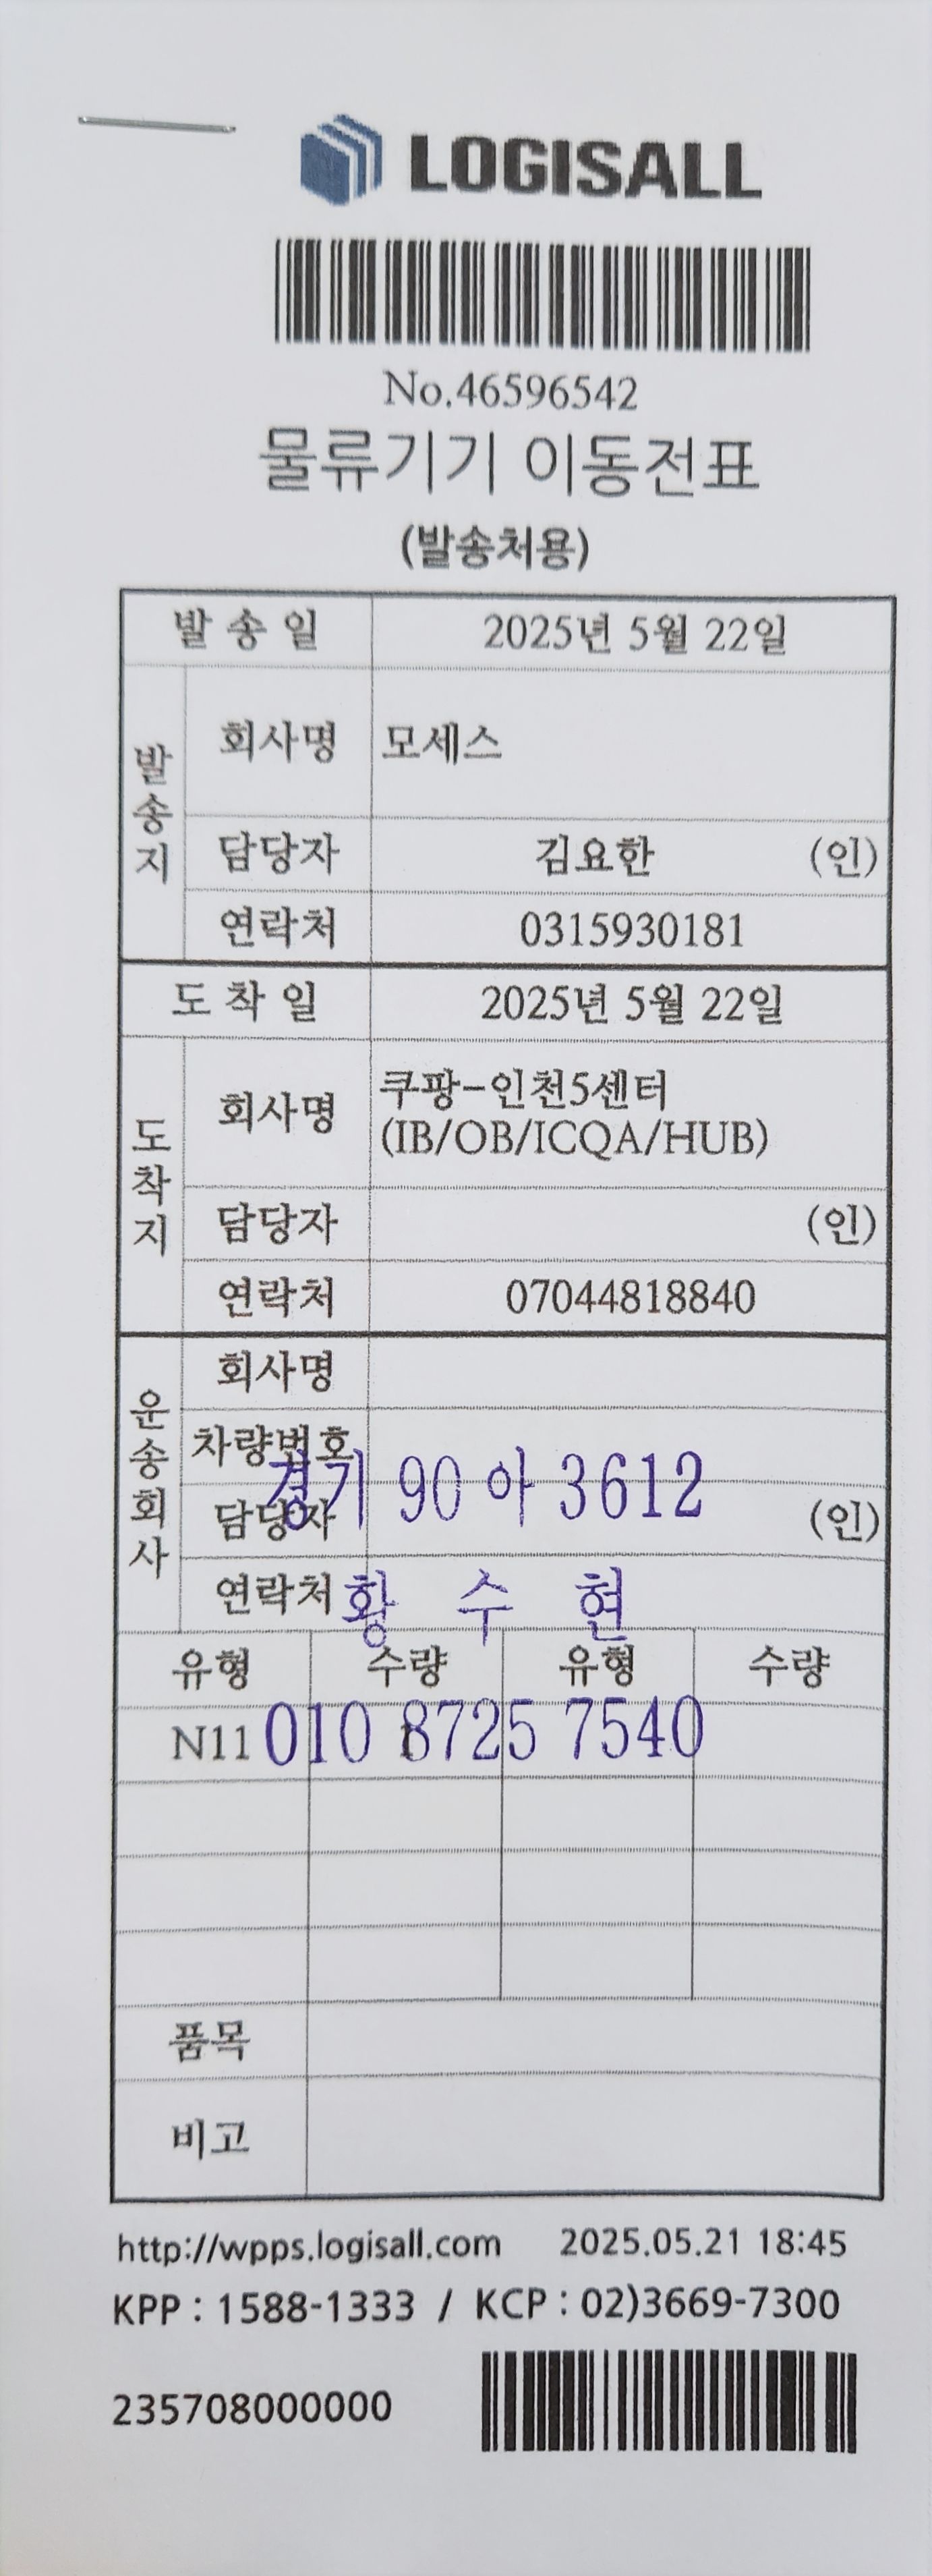 LOGISALL
No.46596542
물류기기 이동전표
(발송처용)
발송일 2025년 5월 22일
발송지
회사명 모세스
담당자 김요한 (인)
연락처 0315930181
도착일 2025년 5월 22일
도착지
회사명 쿠팡-인천5센터
(IB/OB/ICQA/HUB)
담당자 (인)
연락처 07044818840
운송회사
회사명
차량번호
경기 90 아 3612
담당자 (인)
연락처
황 수 현
유형 수량 유형 수량
N11
010 8725 7540
품목
비고
http://wpps.logisall.com 2025.05.21 18:45
KPP : 1588-1333 / KCP : 02)3669-7300
235708000000